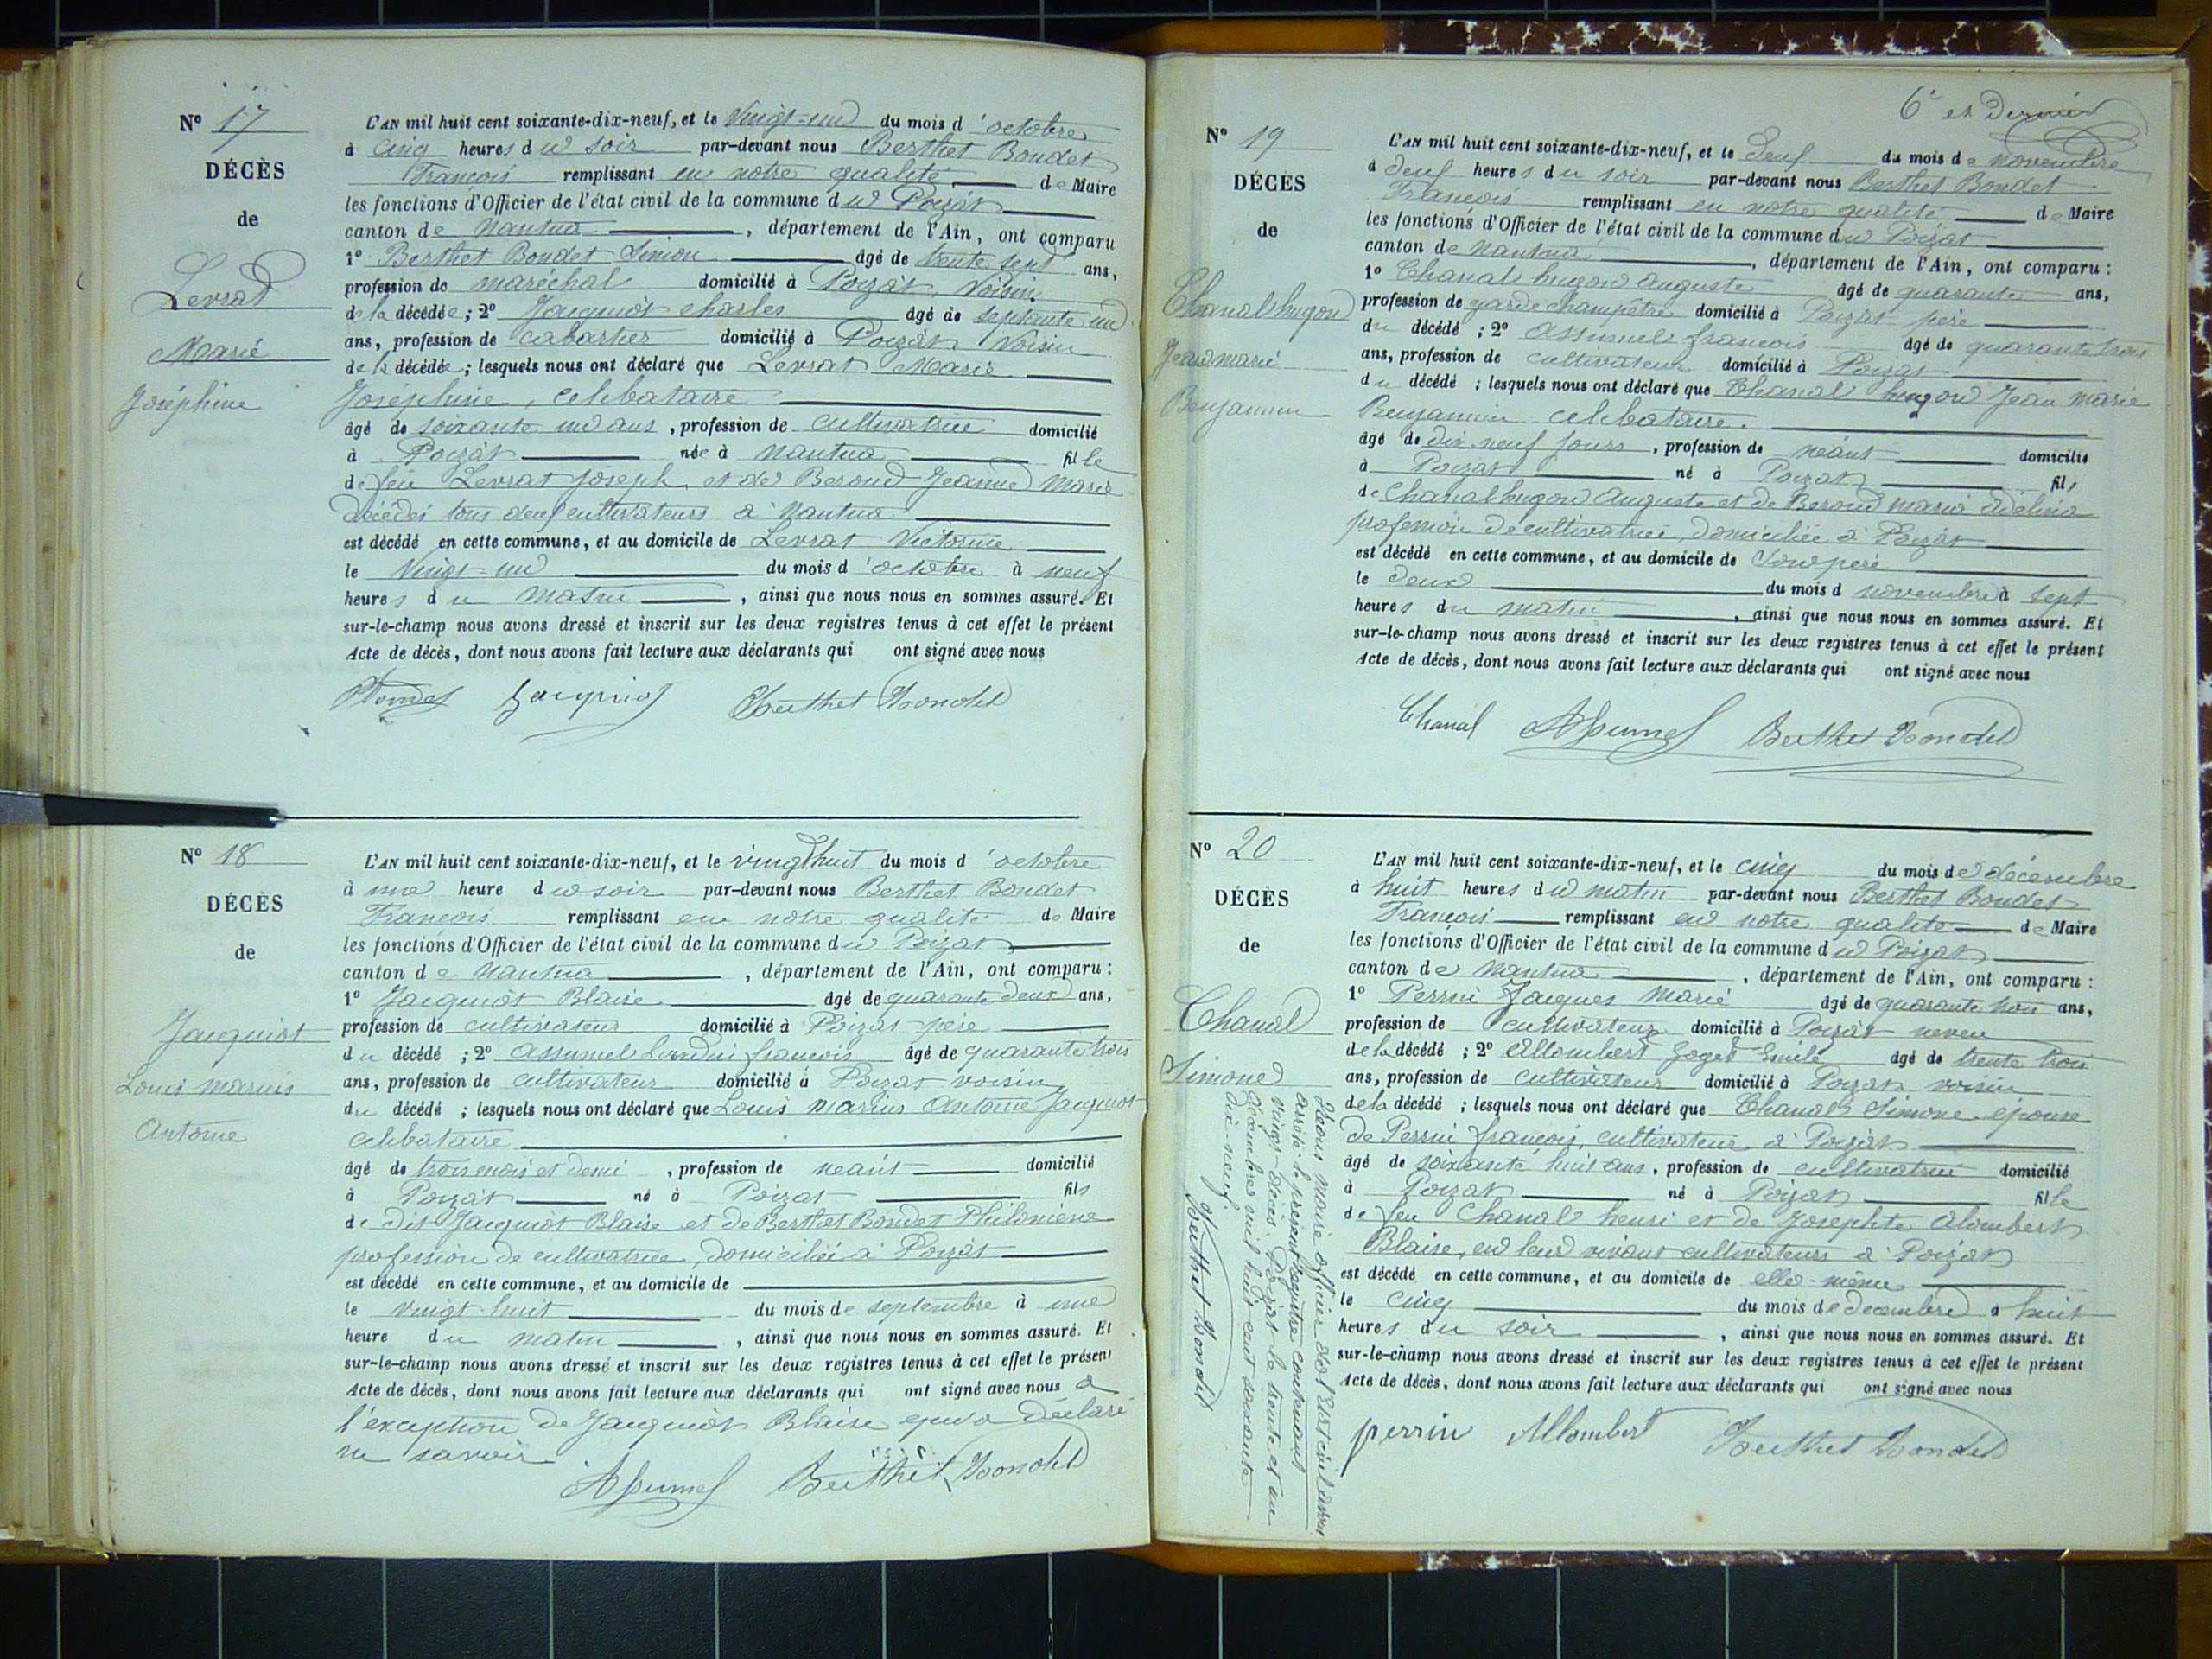 N° 17
DÉCÈS
de
Levrat
Marie
Joséphine
L'AN mil huit cent soixante-dix-neuf, et le vingt-un du mois d'octobre
à cinq heures du soir par-devant nous Berthet Bondet
François remplissant en notre qualité de Maire
les fonctions d'Officier de l'état civil de la commune du Poizat
canton de Nantua, département de l'Ain, ont comparu
1° Berthet Bondet Simon âgé de trente sept ans,
profession de maréchal domicilié à Poizat voisin
de la décédée ; 2° Jacquiot charles âgé de septante un
ans, profession de cabartier domicilié à Poizat voisin
de la décédée ; lesquels nous ont déclaré que Levrat Marie
Joséphine, célibataire
âgé de soixante un ans, profession de cultivatrice domicilié
à Poizat née à Nantua fille
de feu Levrat joseph et de Beroud Jeanne Marie
décédés tous deux cultivateurs à Nantua
est décédé en cette commune, et au domicile de Levrat Victorine
le vingt-un du mois d'octobre à neuf
heures du matin, ainsi que nous nous en sommes assuré. Et
sur-le-champ nous avons dressé et inscrit sur les deux registres tenus à cet effet le présent
Acte de décès, dont nous avons fait lecture aux déclarants qui ont signé avec nous
Bondet Jacquiot Berthet Bondet
N° 18
DÉCÈS
de
Jacquiot
Louis marius
Antoine
L'AN mil huit cent soixante-dix-neuf, et le vingt huit du mois d'octobre
à une heure du soir par-devant nous Berthet Bondet
François remplissant en notre qualité de Maire
les fonctions d'Officier de l'état civil de la commune du Poizat
canton de Nantua, département de l'Ain, ont comparu :
1° Jacquiot Blaise âgé de quarante deux ans,
profession de cultivateur domicilié à Poizat père
du décédé ; 2° Assumel Lurdin françois âgé de quarante trois
ans, profession de cultivateur domicilié à Poizat voisin
du décédé ; lesquels nous ont déclaré que Louis Marius Antoine Jacquiot
célibataire
âgé de trois mois et demi, profession de néant domicilié
à Poizat né à Poizat fils
de dit Jacquiot Blaise et de Berthet Bondet Philomène
profession de cultivatrice, domiciliée à Poizat
est décédé en cette commune, et au domicile de
le vingt-huit du mois de septembre à une
heure du matin, ainsi que nous nous en sommes assuré. Et
sur-le-champ nous avons dressé et inscrit sur les deux registres tenus à cet effet le présent
Acte de décès, dont nous avons fait lecture aux déclarants qui ont signé avec nous à
l'exception de Jacquiot Blaise qui a déclaré
ne savoir
Assumel Berthet Bondet
6e et Dernier
N° 19
DÉCÈS
de
Chanal hugon
Jean marie
Benjamin
L'AN mil huit cent soixante-dix-neuf, et le deux du mois de novembre
à deux heures du soir par-devant nous Berthet Bondet
François remplissant en notre qualité de Maire
les fonctions d'Officier de l'état civil de la commune du Poizat
canton de Nantua, département de l'Ain, ont comparu :
1° Chanal hugon Auguste âgé de quarante ans,
profession de garde champêtre domicilié à Poizat père
du décédé ; 2° Assumel françois âgé de quarante trois
ans, profession de cultivateur domicilié à Poizat
du décédé ; lesquels nous ont déclaré que Chanal hugon Jean marie
Benjamin célibataire.
âgé de dix-neuf jours, profession de néant domicilié
à Poizat né à Poizat fils
de Chanal hugon Auguste et de Beroud maria adélina
profession de cultivatrice, domiciliée à Poizat
est décédé en cette commune, et au domicile de son père
le deux du mois d novembre à sept
heures du matin, ainsi que nous nous en sommes assuré. Et
sur-le-champ nous avons dressé et inscrit sur les deux registres tenus à cet effet le présent
Acte de décès, dont nous avons fait lecture aux déclarants qui ont signé avec nous
Chanal Assumel Berthet Bondet
N° 20
DÉCÈS
de
Chanal
Simone
L'AN mil huit cent soixante-dix-neuf, et le cinq du mois de décembre
à huit heures du matin par-devant nous Berthet Bondet
François remplissant en notre qualité de Maire
les fonctions d'Officier de l'état civil de la commune du Poizat
canton de Nantua, département de l'Ain, ont comparu :
1° Perrin Jacques Marie âgé de quarante trois ans,
profession de cultivateur domicilié à Poizat neveu
de la décédé ; 2° Allombert Goget Emile âgé de trente trois
ans, profession de cultivateur domicilié à Poizat voisin
de la décédé ; lesquels nous ont déclaré que Chanal Simone épouse
de Perrin françois, cultivateur à Poizat
âgé de soixante huit ans, profession de cultivatrice domicilié
à Poizat né à Poizat fille
de feu Chanal henri et de Josephte Alombert
Blaise, en leur vivant cultivateurs à Poizat
est décédé en cette commune, et au domicile de elle-même
le cinq du mois de décembre à huit
heures du soir, ainsi que nous nous en sommes assuré. Et
sur-le-champ nous avons dressé et inscrit sur les deux registres tenus à cet effet le présent
Acte de décès, dont nous avons fait lecture aux déclarants qui ont signé avec nous
perrin Allombert Berthet Bondet
Nous maire officier de l'Etat civil avons
arrêté le présent Registre contenant
vingt décès. Poizat le trente et un
décembre mil huit cent soixante
dix-neuf.
Berthet Bondet